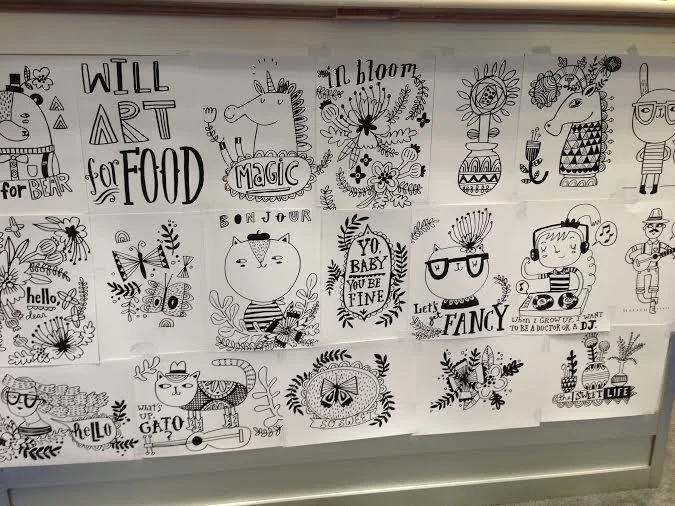 for BEAR
WILL
ART
for FOOD
MAGIC
in bloom
hello,
dear
BONJOUR
YO,
BABY
YOU BE
FINE
Let's
get
FANCY
When I GROW UP, I WANT
TO BE A DOCTOR OR A DJ.
hello
WHAT'S
UP,
GATO
?
SO SWEET
the SWEET LIFE